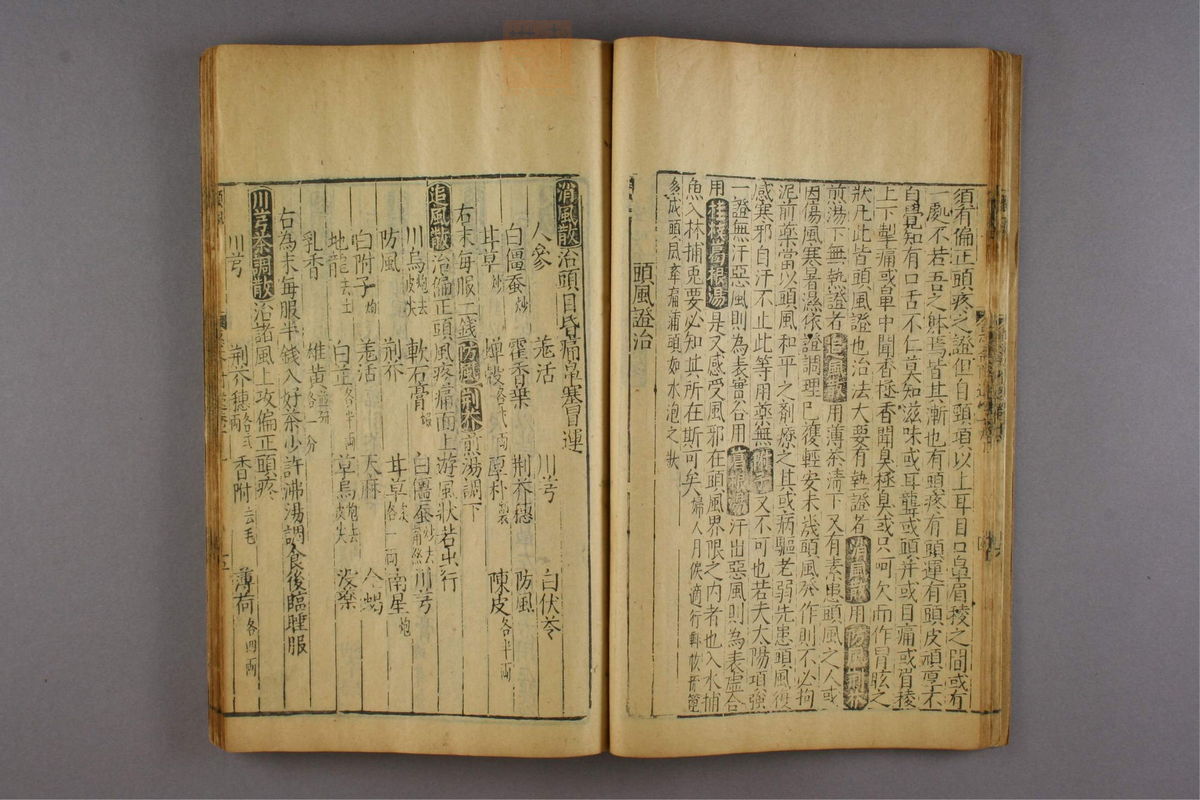 須有偏正頭疼之證但自頸項以上耳目口鼻眉稜之間或有
一處不若吾之躰焉皆其漸也有頭疼有頭運有頭皮頑厚不
自覺知有口舌不仁莫知滋味或耳聾或頭并或目痛或眉稜
上下掣痛或鼻中聞香極香聞臭極臭或只呵欠而作冒眩之
狀凡此皆頭風證也治法大要有熱證者消風散用防風荆芥
煎湯下無熱證者追風散用薄茶清下又有素患頭風之人或
因傷風寒暑濕依證調理已獲輕安未幾頭風發作則不必拘
泥前藥當以頭風和平之劑療之其或病驅老弱先患頭風後
感寒邪自汗不止此等用藥無附子又不可也若夫太陽項強
一證無汗惡風則為表實合用葛根湯汗出惡風則為表虛合
用桂枝葛根湯是又感受風邪在頭風界限之內者也入水捕
魚入林捕兎要必知其所在斯可矣婦人月候適行
多成頭風率痛滿頭如水泡之狀
頭風證治
消風散治頭目昏痛鼻塞冒運
人參 羗活 川芎 白伏苓
白僵蚕炒 霍香葉 荆芥穗 防風
甘草炒 蟬殼各弍両 厚朴製 陳皮各半両
右末每服二錢防風荆芥煎湯調下
追風散治偏正頭風疼痛面上游風狀若虫行
川烏炮去皮尖 軟石膏煅 白僵蚕炒去 川芎
防風 荆芥 甘草炙各一両 南星炮
白附子炮 羗活 天麻 全蝎
地龍去土 白芷各半両 草烏炮去皮尖 没藥
乳香 雄黃各一分
右為末每服半錢入好茶少許沸湯調食後臨睡服
川芎茶調散治諸風上攻偏正頭疼
川芎 荆芥穗各弍両 香附去毛 薄荷各四両